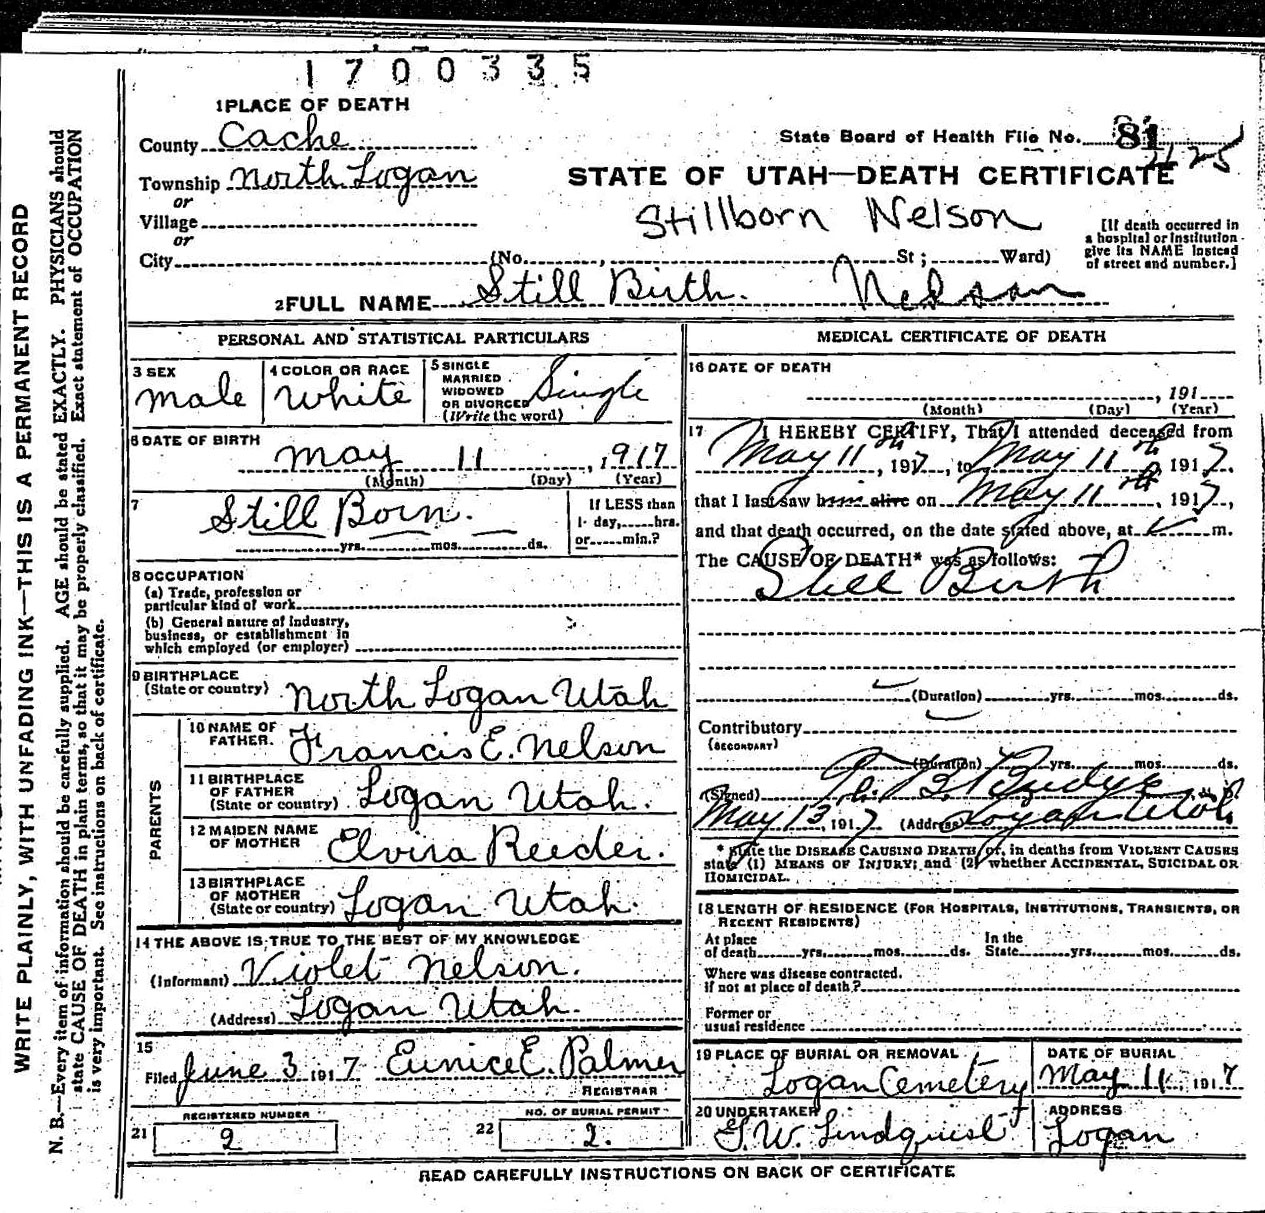 1700335
1 PLACE OF DEATH
County Cache
State Board of Health File No. 81
2125
Township North Logan
STATE OF UTAH—DEATH CERTIFICATE
or
Village
Stillborn Nelson
or
City (No. , St ; Ward)
[If death occurred in
a hospital or institution
give its NAME instead
of street and number.]
2 FULL NAME Still Birth. Nelson
PERSONAL AND STATISTICAL PARTICULARS
3 SEX
Male
4 COLOR OR RACE
White
5 SINGLE
MARRIED
WIDOWED
OR DIVORCED
(Write the word)
Single
6 DATE OF BIRTH
May 11, 1917
(Month) (Day) (Year)
7
Still Born.
yrs. mos. ds.
If LESS than
1 day, hrs.
or min.?
8 OCCUPATION
(a) Trade, profession or
particular kind of work
(b) General nature of industry,
business, or establishment in
which employed (or employer)
9 BIRTHPLACE
(State or country) North Logan Utah
PARENTS
10 NAME OF
FATHER. Francis E. Nelson
11 BIRTHPLACE
OF FATHER
(State or country) Logan Utah.
12 MAIDEN NAME
OF MOTHER Elvira Reeder.
13 BIRTHPLACE
OF MOTHER
(State or country) Logan Utah.
14 THE ABOVE IS TRUE TO THE BEST OF MY KNOWLEDGE
(Informant) Violet Nelson.
(Address) Logan Utah.
15
Filed June 3 1917 Eunice E. Palmer
REGISTRAR
REGISTERED NUMBER
21 2
NO. OF BURIAL PERMIT
22 2.
MEDICAL CERTIFICATE OF DEATH
16 DATE OF DEATH
, 191
(Month) (Day) (Year)
17 I HEREBY CERTIFY, That I attended deceased from
May 11th, 1917, to May 11th, 1917,
that I last saw him alive on May 11th, 1917,
and that death occurred, on the date stated above, at m.
The CAUSE OF DEATH* was as follows:
Still Birth
(Duration) yrs. mos. ds.
Contributory
(SECONDARY)
(Duration) yrs. mos. ds.
(Signed) B. Budge M. D.
May 13, 1917 (Address) Logan Utah
* State the DISEASE CAUSING DEATH or, in deaths from VIOLENT CAUSES
state (1) MEANS OF INJURY; and (2) whether ACCIDENTAL, SUICIDAL OR
HOMICIDAL.
18 LENGTH OF RESIDENCE (FOR HOSPITALS, INSTITUTIONS, TRANSIENTS, OR
RECENT RESIDENTS)
At place
of death yrs. mos. ds.
In the
State yrs. mos. ds.
Where was disease contracted.
if not at place of death?
Former or
usual residence
19 PLACE OF BURIAL OR REMOVAL
Logan Cemetery
DATE OF BURIAL
May 11, 1917
20 UNDERTAKER
W. Lindquist
ADDRESS
Logan
READ CAREFULLY INSTRUCTIONS ON BACK OF CERTIFICATE
WRITE PLAINLY, WITH UNFADING INK—THIS IS A PERMANENT RECORD
N. B.—Every item of information should be carefully supplied. AGE should be stated EXACTLY. PHYSICIANS should
state CAUSE OF DEATH in plain terms, so that it may be properly classified. Exact statement of OCCUPATION
is very important. See instructions on back of certificate.